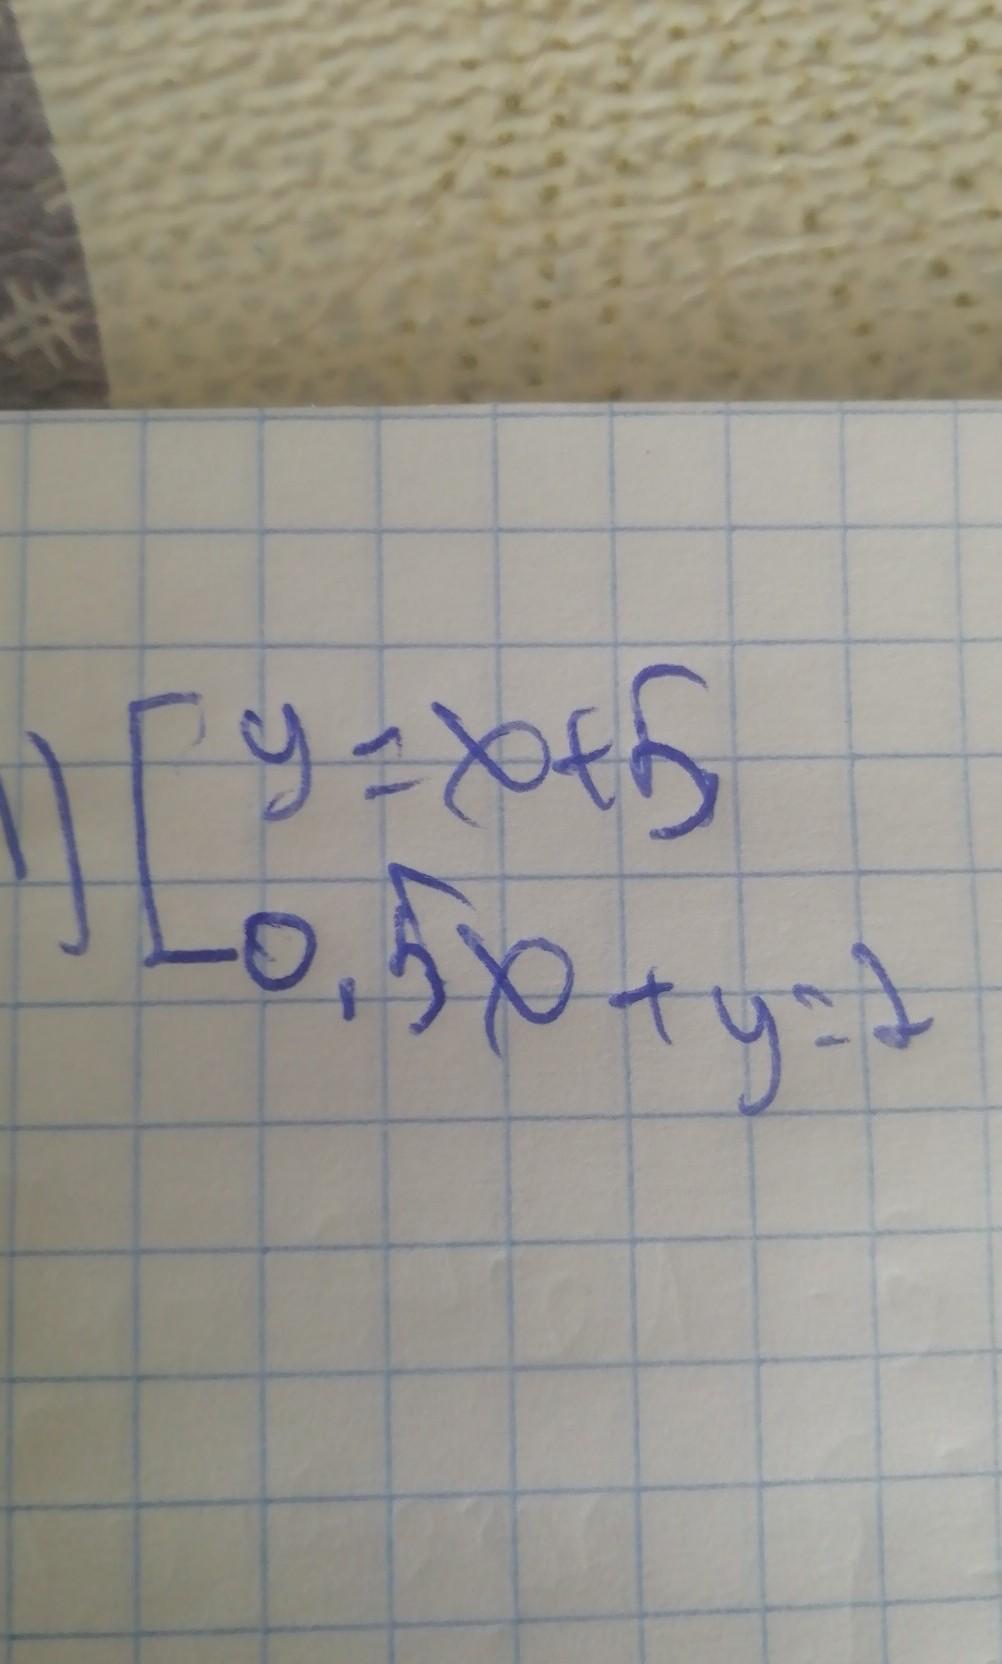 1) [ y = x+5
0,5x + y = 2